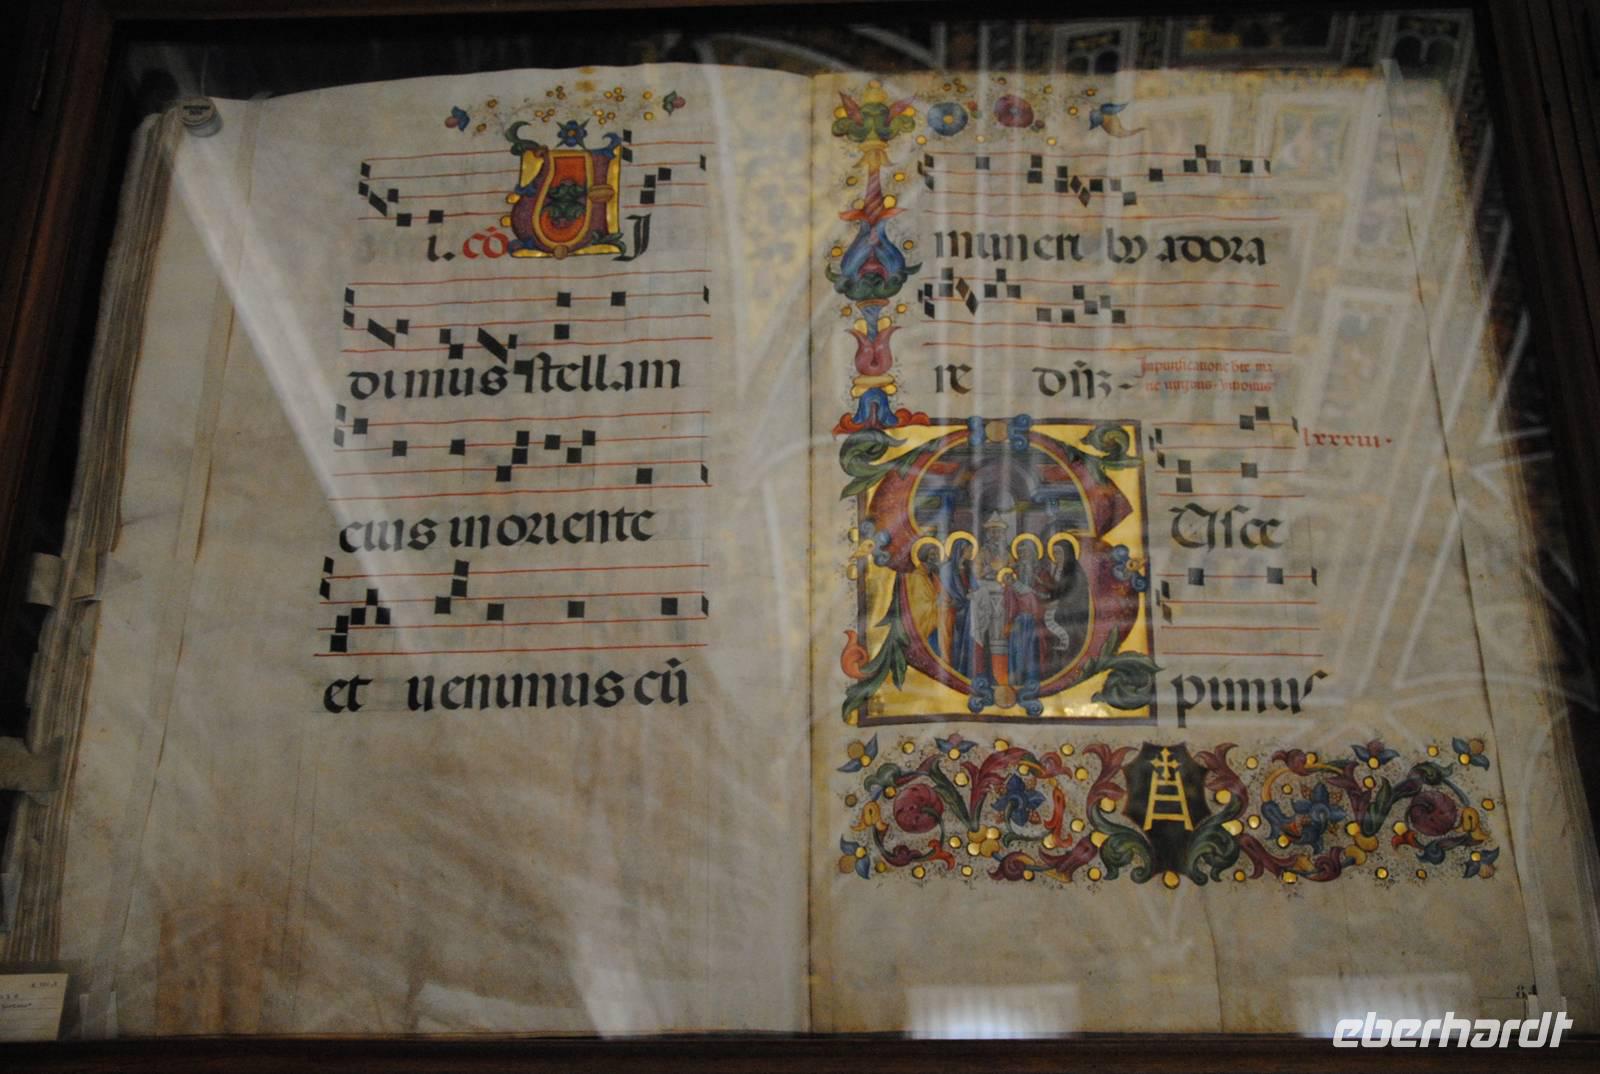 i. cō V I
dimus stellam
eius in oriente
et uenimus cū
munerib; adora
re dn̄z.
In purificatione bte ma
rie uirginis. Introitus
lxxxiii.
Suſce
pimus
84
eberhardt